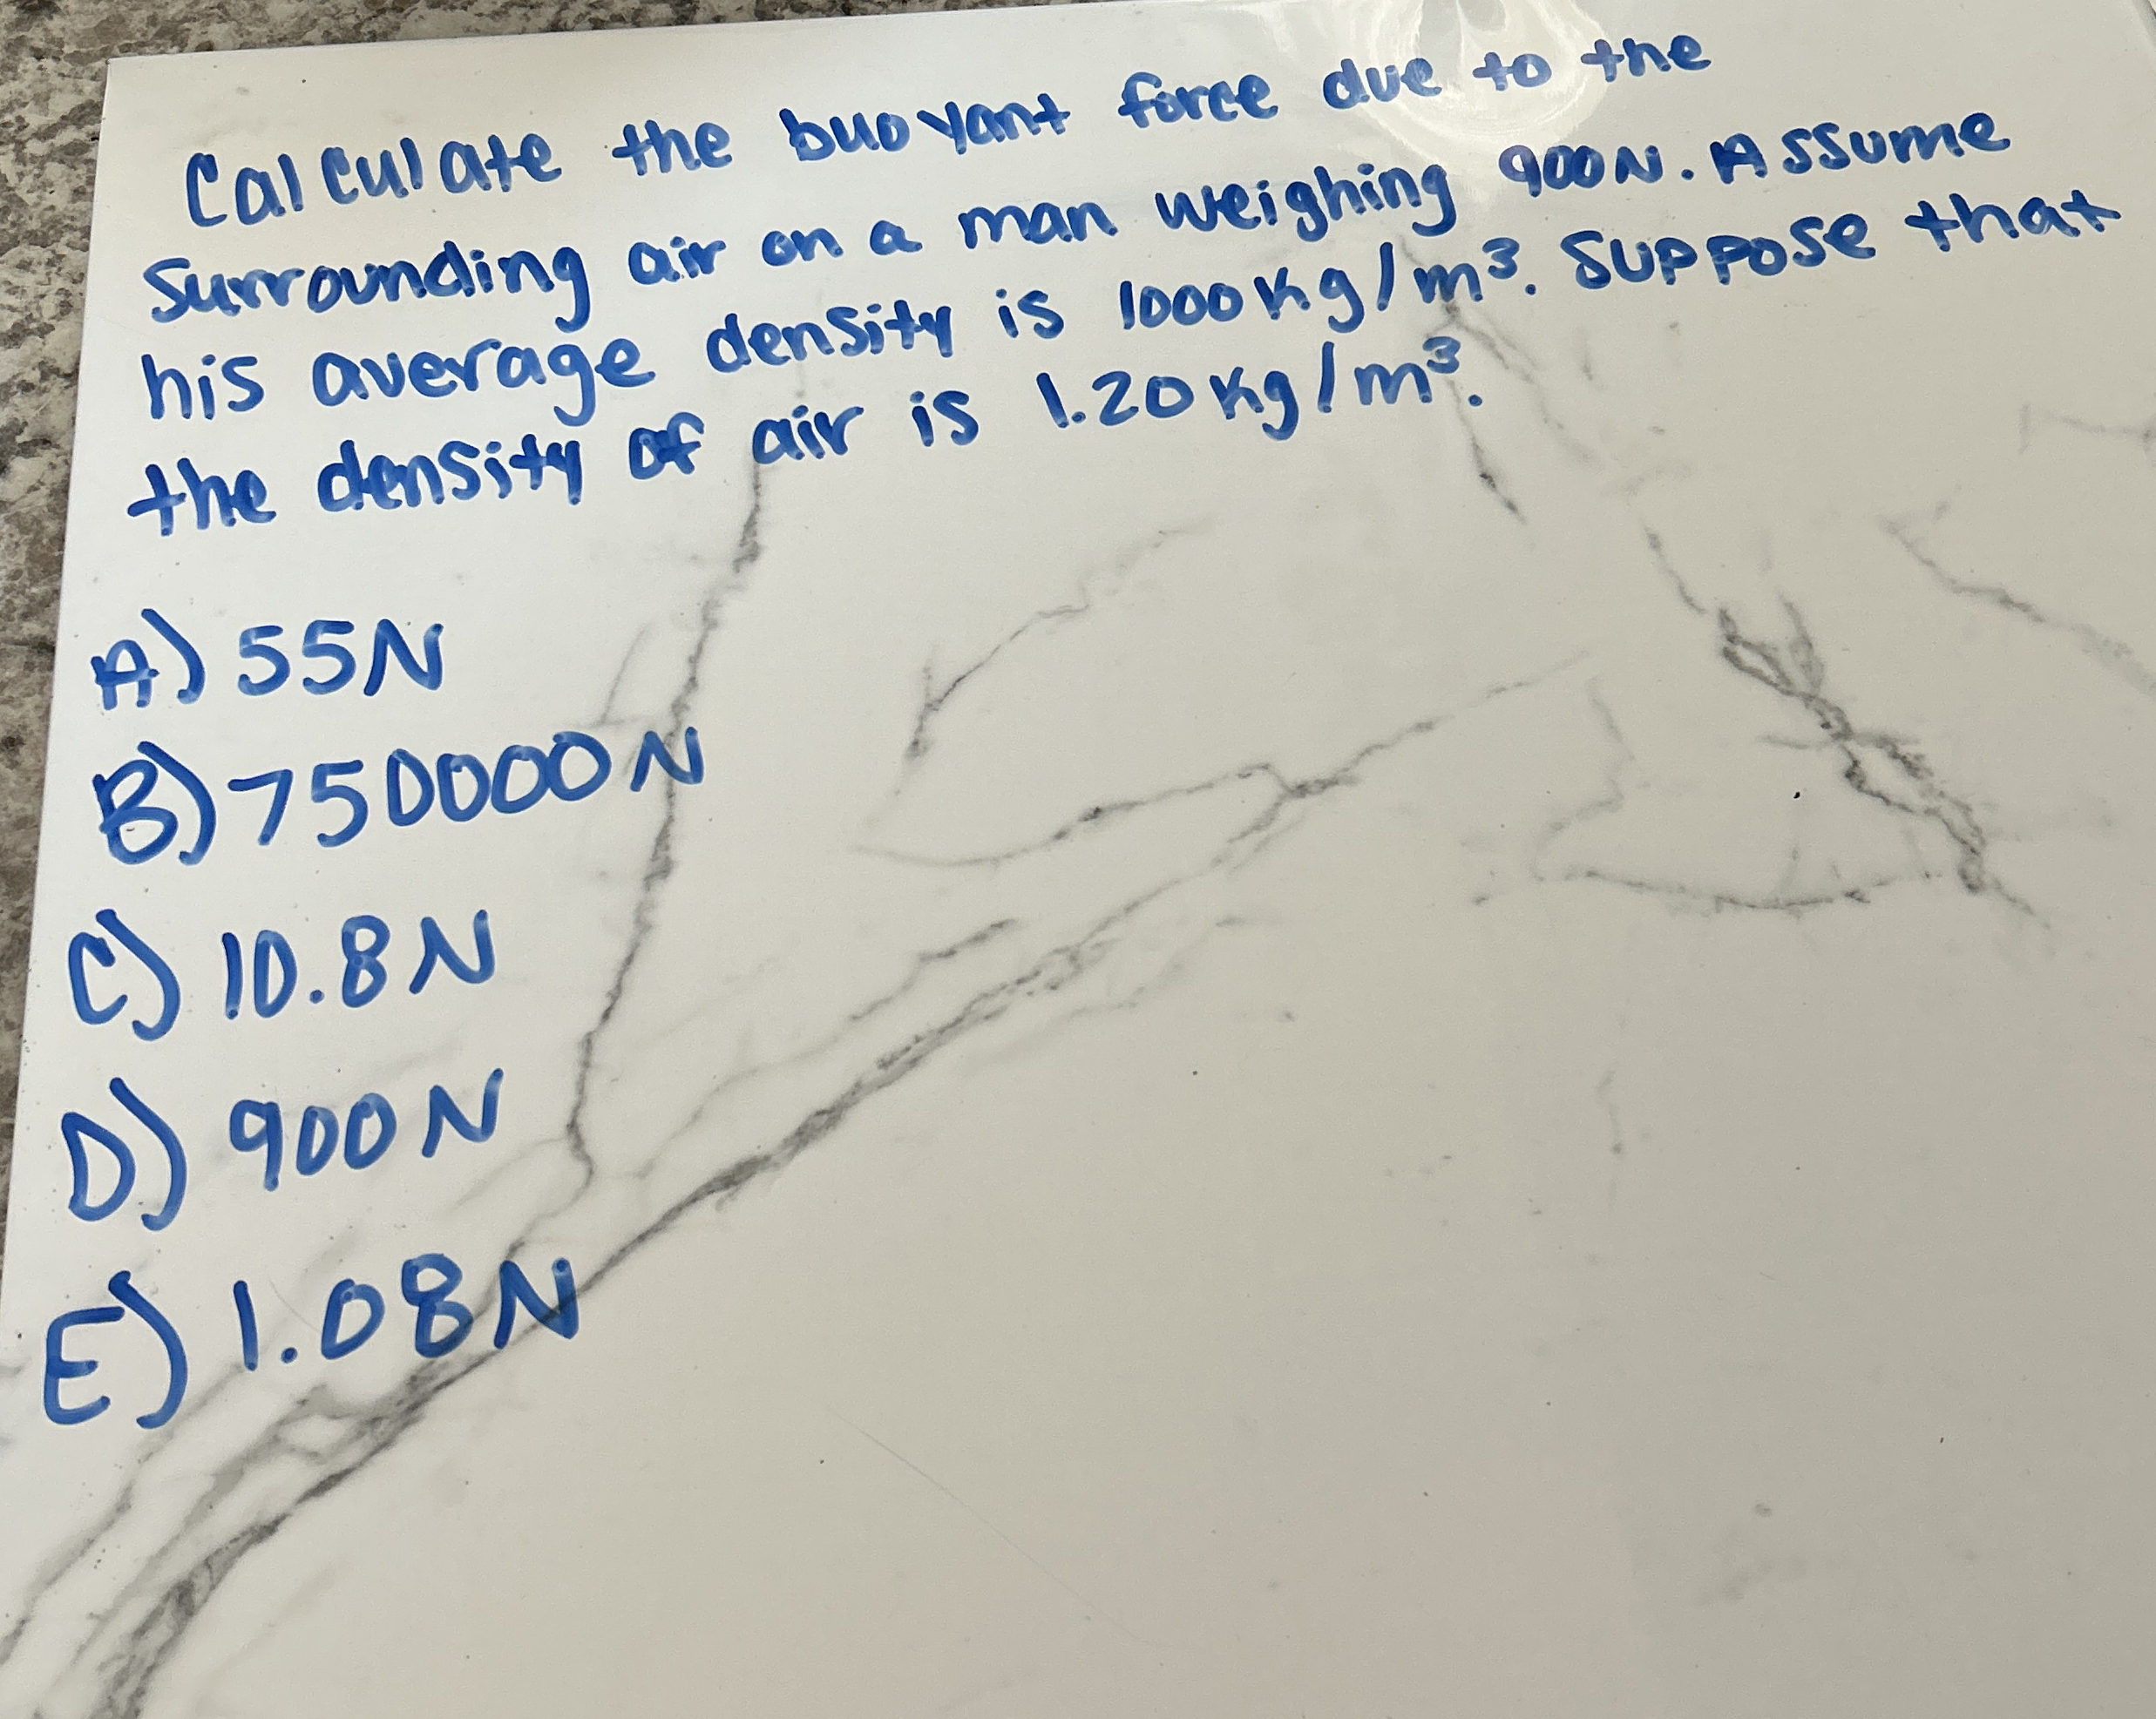 Calculate the buoyant force due to the
Surrounding air on a man weighing 900N. Assume
his average density is 1000kg/m³. Suppose that
the density of air is 1.20kg/m³.
A) 55N
B) 750000N
C) 10.8N
D) 900N
E) 1.08N